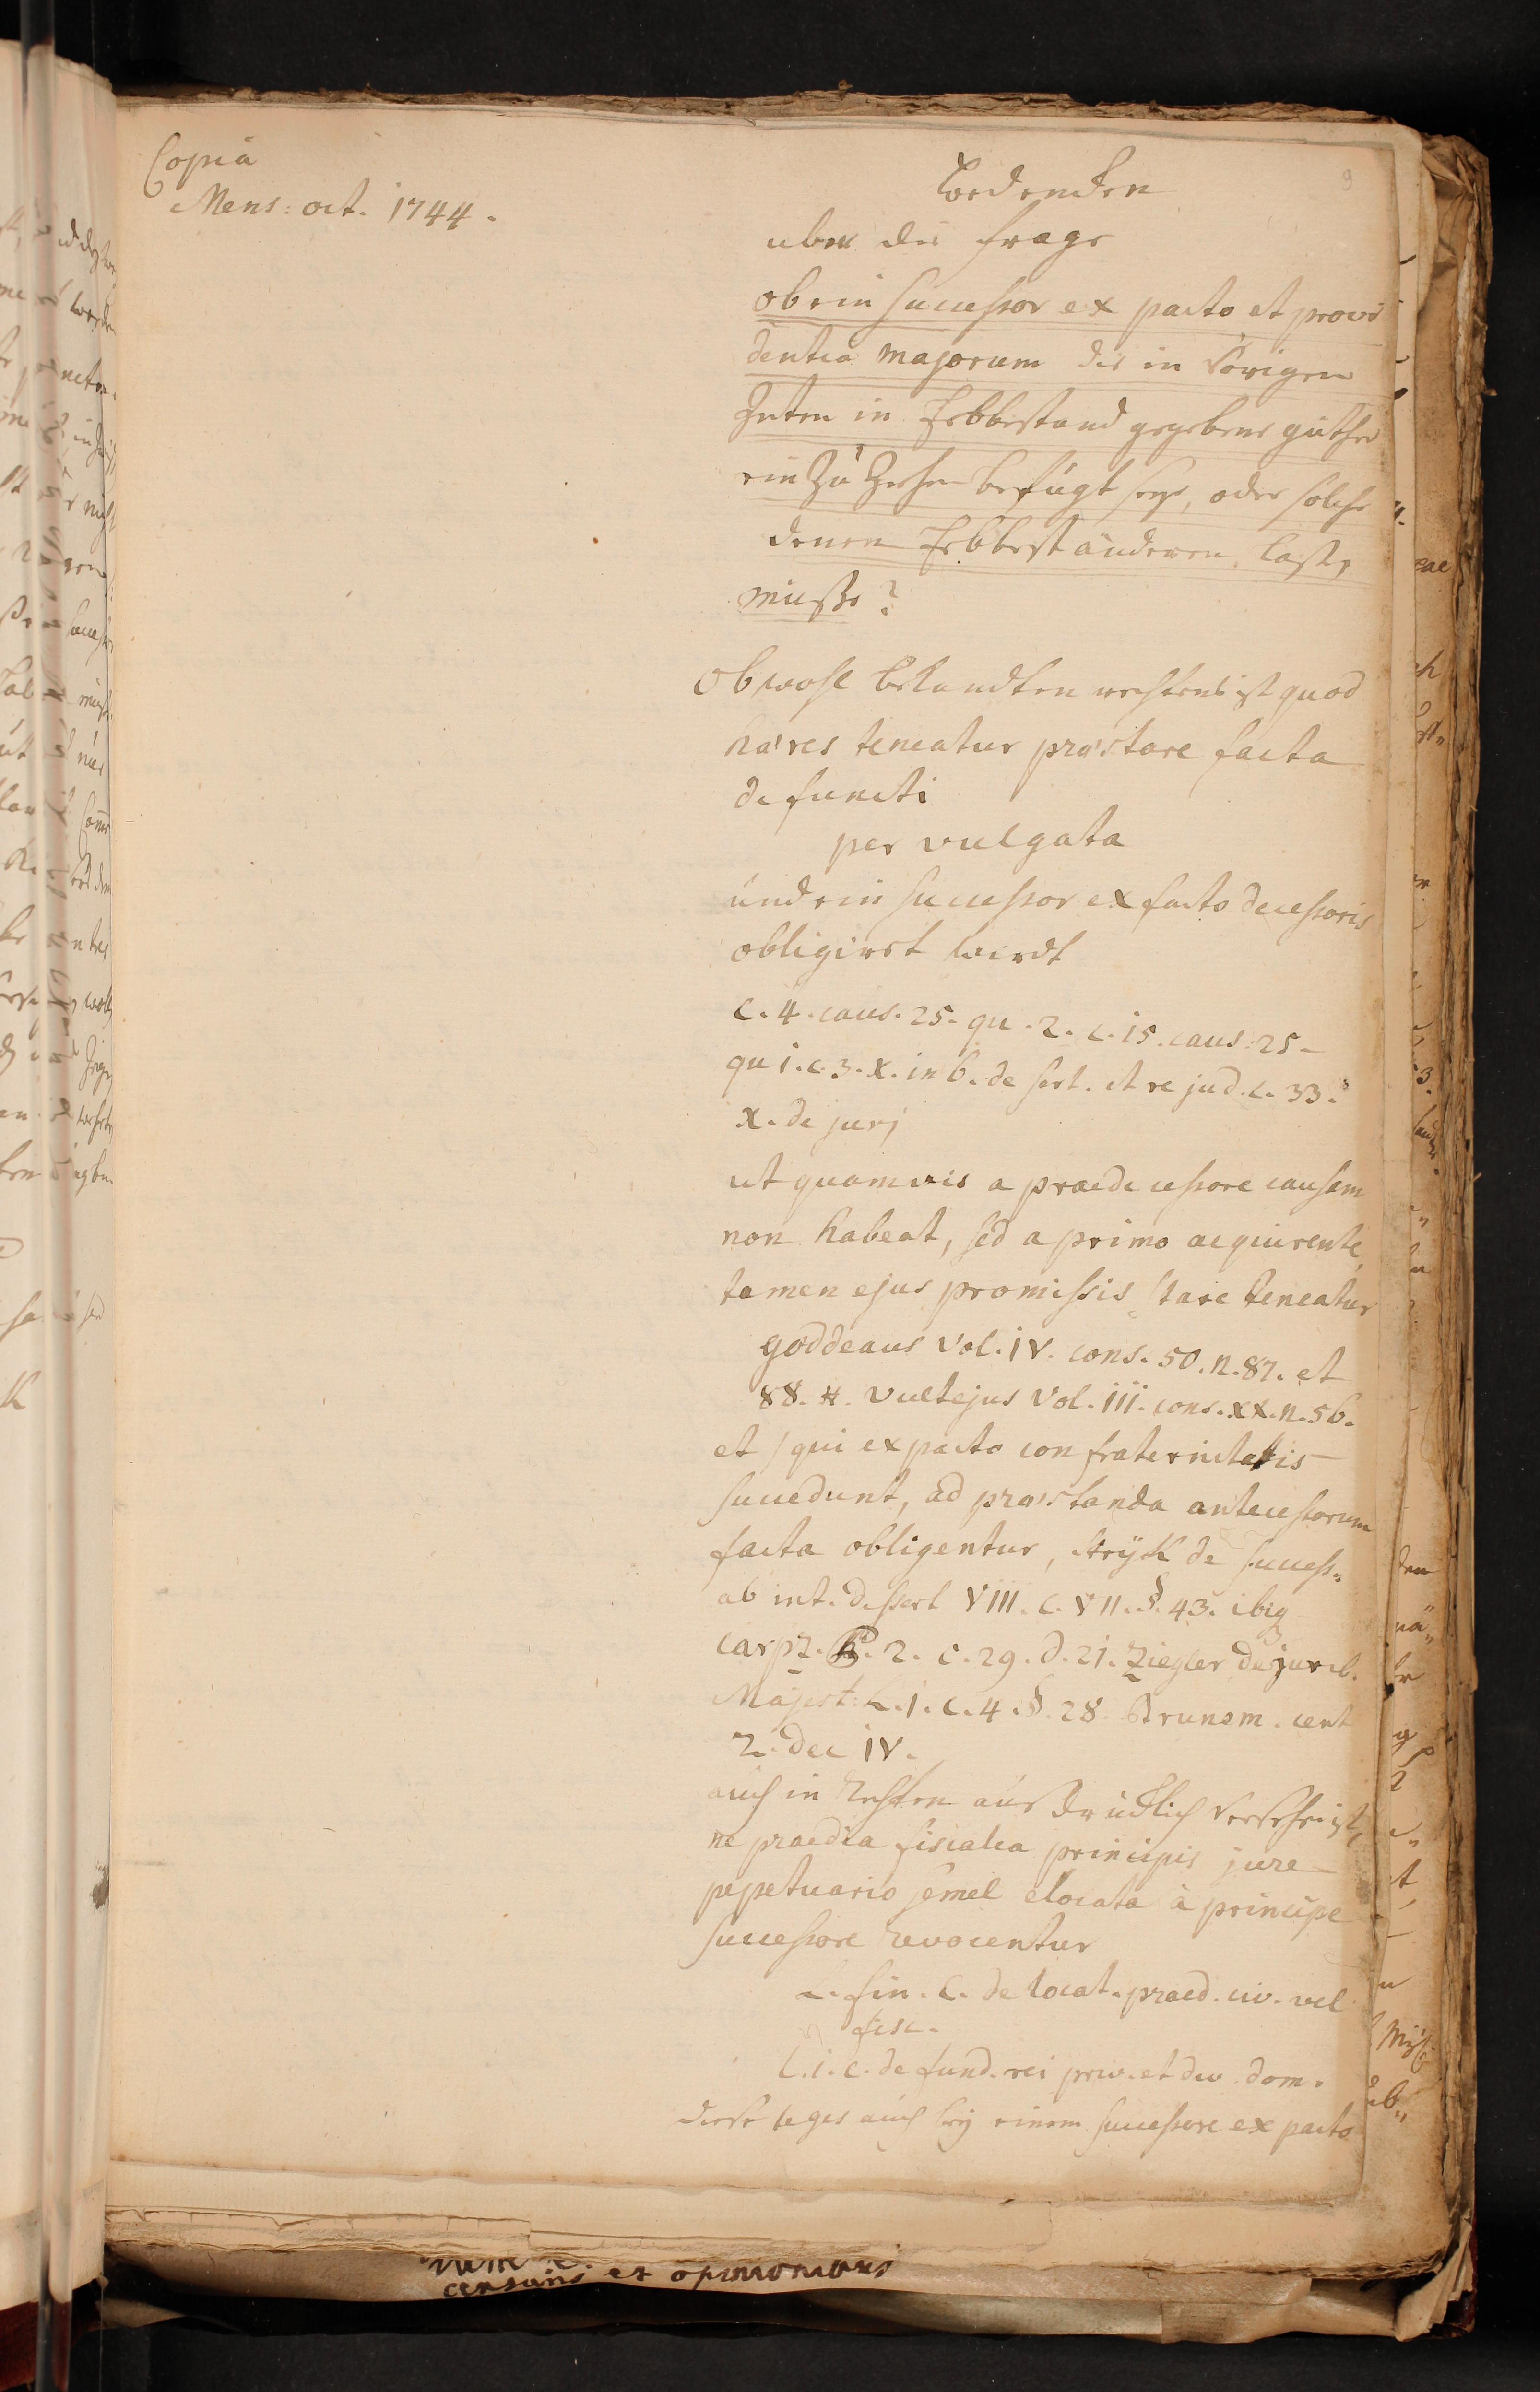 Copia
Mens: oct. 1744.
9
Bedencken
uber die frage
ob ein successor ex pacto et provi
dentia majorum die in vorigen
Zeiten in Erbbestand gegebene güther
ein zu ziehen befugt seye, oder solche
denen Erbbeständeren lasse,
müsse?
Obwohl bekandten rechtens ist quod
hæres teneatur præstare facta
defuncti
per vulgata
und ein successor ex facto decessoris
obligiret wirdt
c. 4. caus. 25. qu. 2. c. 15. caus: 25.
qu 1. c. 3. X. in 6. de sert. et re jud. c. 33.
X. de jurj
ut quamvis a praedecessore causam
non habeat, sed a primo acquirente
tamen ejus promissis stare teneatur
goddeaus Vol. IV. cons. 50. n. 87. et
88. Vultejus Vol. III. cons. XX. n. 56.
et qui ex pacto confraternitatis
succedunt, ad præstanda antecessorum
facta obligentur, strÿk de success.
ab int. dissert VIII. c. VII. §. 43. ibiq
carpz. P. 2. c. 29. d. 21. Ziegler de jurib.
Majest: L. 1. c. 4. §. 28. Brunem. cent
2. dec IV.
auch in Rechten außdrücklich versehen ist,
ne praedia fiscalia principis jure
pepetuario semel elocata à principe
successore revocentur
L. fin. C. de locat. praed. civ. vel
fisc.
L. i. C. de fund. rei priv. et div. dom.
diese leges auch bey einem successore ex pacto
censuris et opinionibus